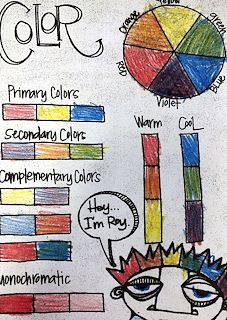 COLOR
Orange
Yellow
green
RED
Violet
BLUE
Primary Colors
Secondary Colors
Complementary Colors
Monochromatic
Warm
Cool
Hey...
I'm Roy.